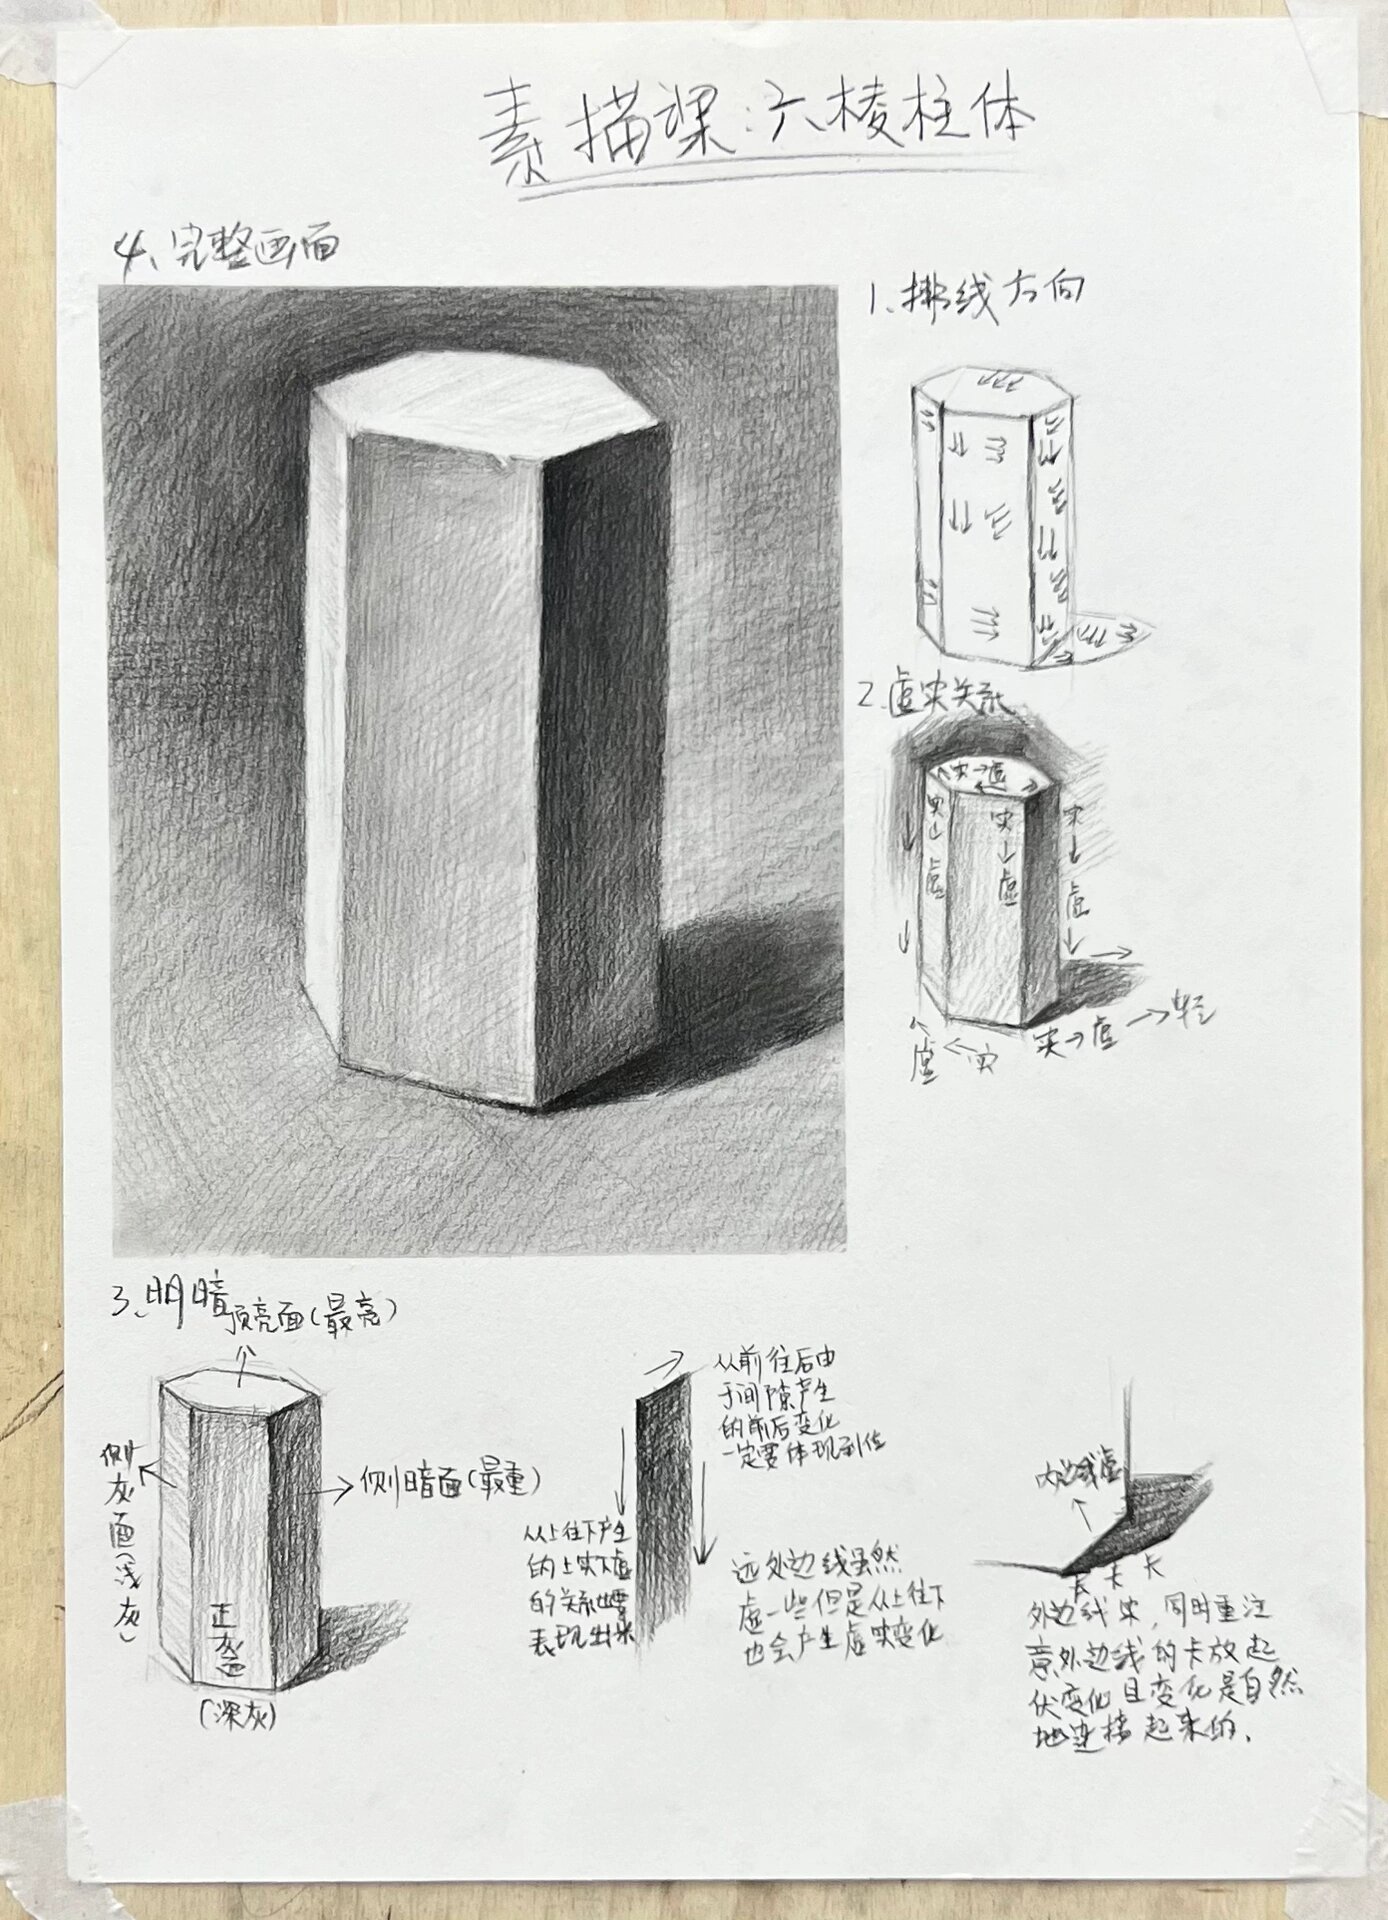 素描课:六棱柱体
4、完整画面
1、排线方向
2.虚实关系
实→虚
实
虚
实
虚
实
虚
虚←实
实→虚→轻
3、明暗
顶亮面(最亮)
侧灰面(浅灰)
侧暗面(最重)
正灰面
(深灰)
从前往后由
于间隙产生
的前后变化
一定要体现到位
从上往下产生
的上实下虚
的关系也要
表现出来
远处边线虽然
虚一些但是从上往下
也会产生虚实变化
内边线虚
卡 卡 卡
外边线实,同时重注
意外边线的卡放起
伏变化且变化是自然
地连接起来的.